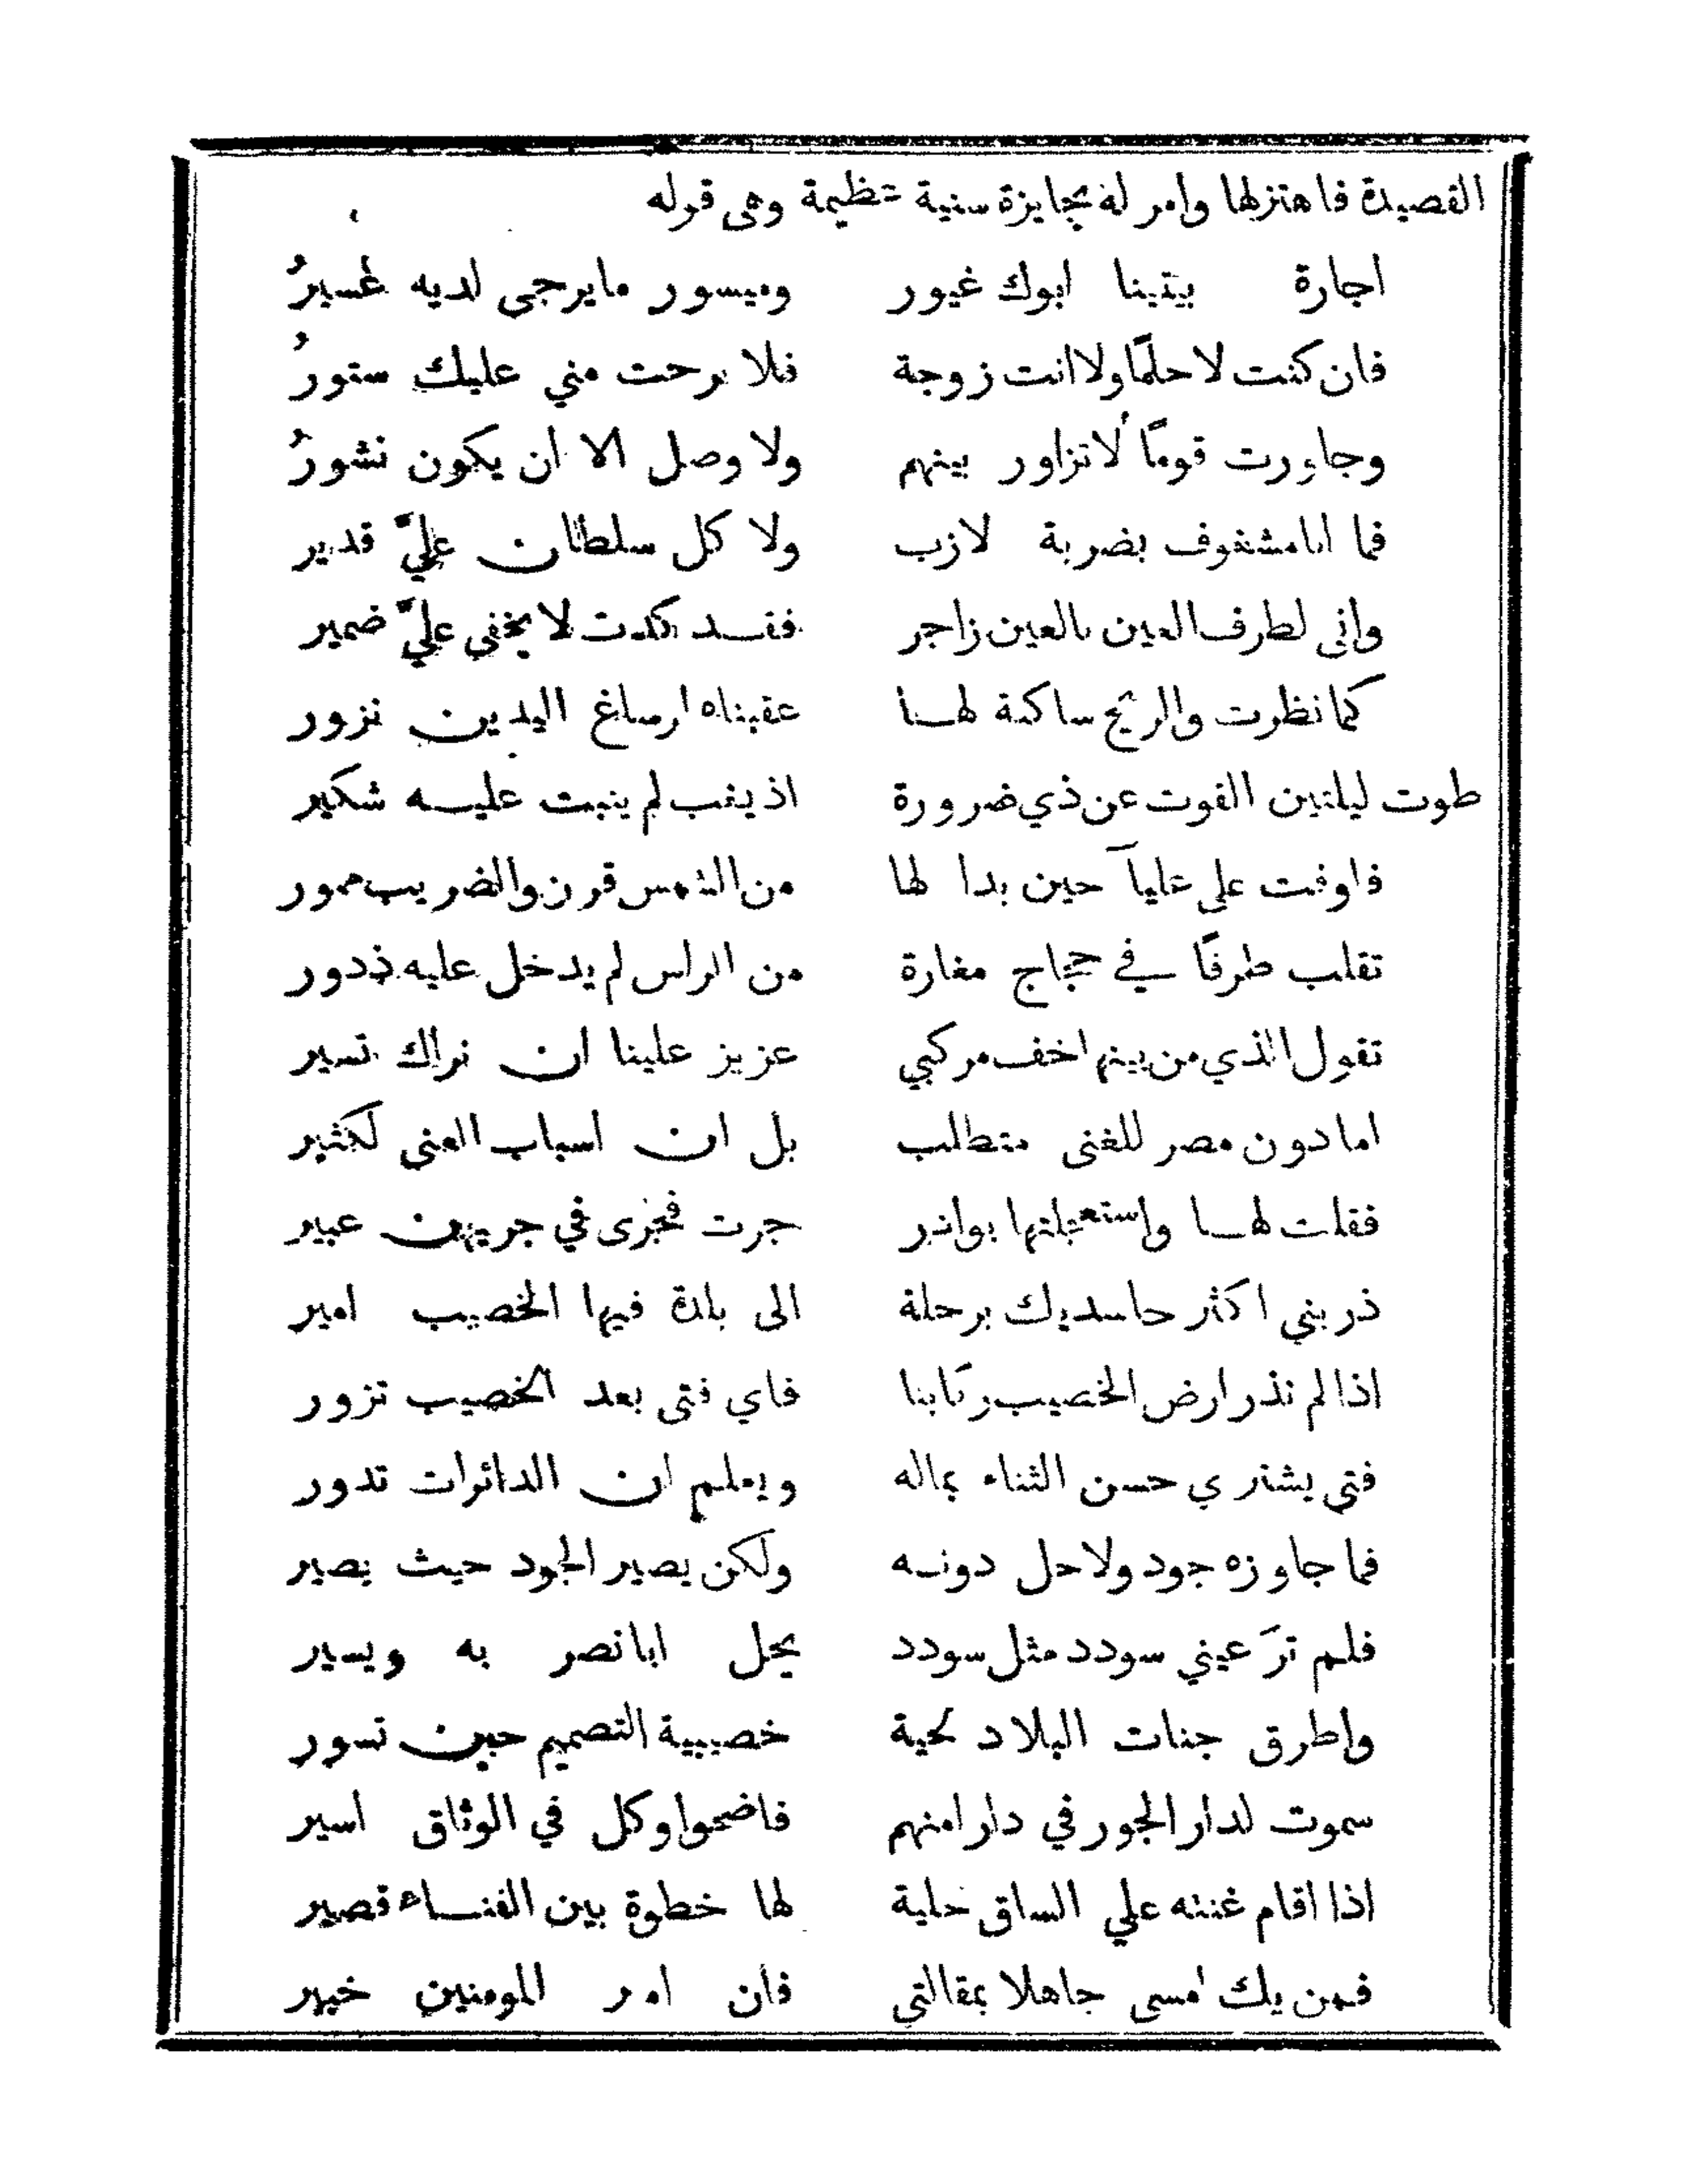 القصيدة فاهتزلها وامر له بجايزة سنية عظيمة وهى قوله
اجارة بيتينا ابوك غيور وميسور مايرجى لديه غسيرُ
فان كنت لا حلمًا ولا انت زوجة فلا برحت مني عليك ستورُ
وجاورت قومًا لاتزاور بينهم ولا وصل الا ان يكون نشورُ
فما انا مشغوف بضربة لازب ولا كل سلطان عليّ قدير
وانى لطرف العين بالعين زاجر فقد كدت لا يخفى عليّ ضمير
كما نظرت والريح ساكنة لها عقبناه ارساغ اليدين نزور
طوت ليلتين القوت عن ذي ضرورة اذ يغب لم ينبت عليه شكير
فاوفت على عليآ حين بدا لها من الشمس قرن والضريب يمور
تقلب طرفًا في حجاج مغارة من الراس لم يدخل عليه ذدور
تقول الذي من بينها خف مركبي عزيز علينا ان نراك تسير
اما دون مصر للغنى متطلب بل ان اسباب الغنى لكثير
فقلت لها واستعجلتها بوادر جرت فجرى في جريهن عبير
ذريني اكثر حاسديك برحلة الى بلدة فيها الخصيب امير
اذا لم نذر ارض الخصيب ركابنا فاي فتى بعد الخصيب تزور
فتى يشتري حسن الثناء بماله ويعلم ان الدائرات تدور
فما جاوزه جود ولا حل دونه ولكن يصير الجود حيث يصير
فلم ترَ عيني سودد مثل سودد يحل ابا نصر به ويسير
واطرق جنات البلاد لحية خصيبية التصميم حين تسور
سموت لدار الجور في دار امنهم فاضحوا وكل في الوثاق اسير
اذا اقام غنته علي الساق حلية لها خطوة بين الفناء قصير
فمن يك امسى جاهلا بمقالتي فان امر المومنين خبير